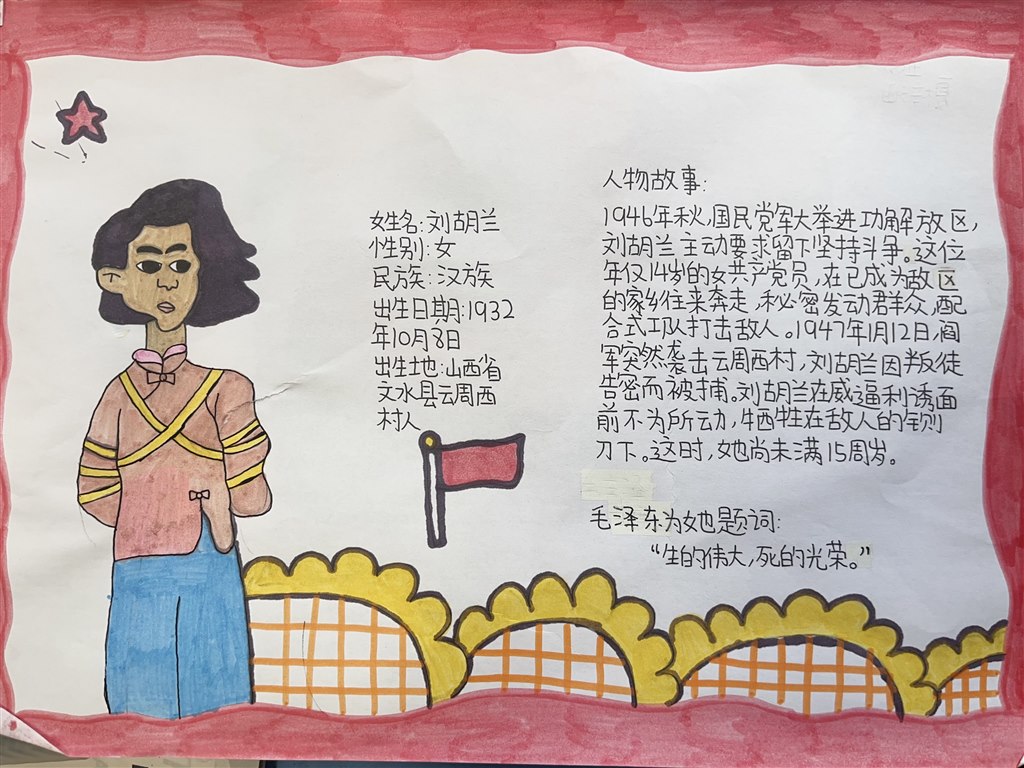 姓名:刘胡兰
性别:女
民族:汉族
出生日期:1932
年10月8日
出生地:山西省
文水县云周西
村人
人物故事:
1946年秋,国民党军大举进功解放区,
刘胡兰主动要求留下坚持斗争。这位
年仅14岁的女共产党员,在已成为敌区
的家乡往来奔走,秘密发动群众,配
合武工队打击敌人。1947年1月12日,阎
军突然袭击云周西村,刘胡兰因判叛徒
告密而被捕。刘胡兰在威逼利诱面
前不为所动,牺牲在敌人的铡
刀下。这时,她尚未满15周岁。
毛泽东为她题词:
“生的伟大,死的光荣。”